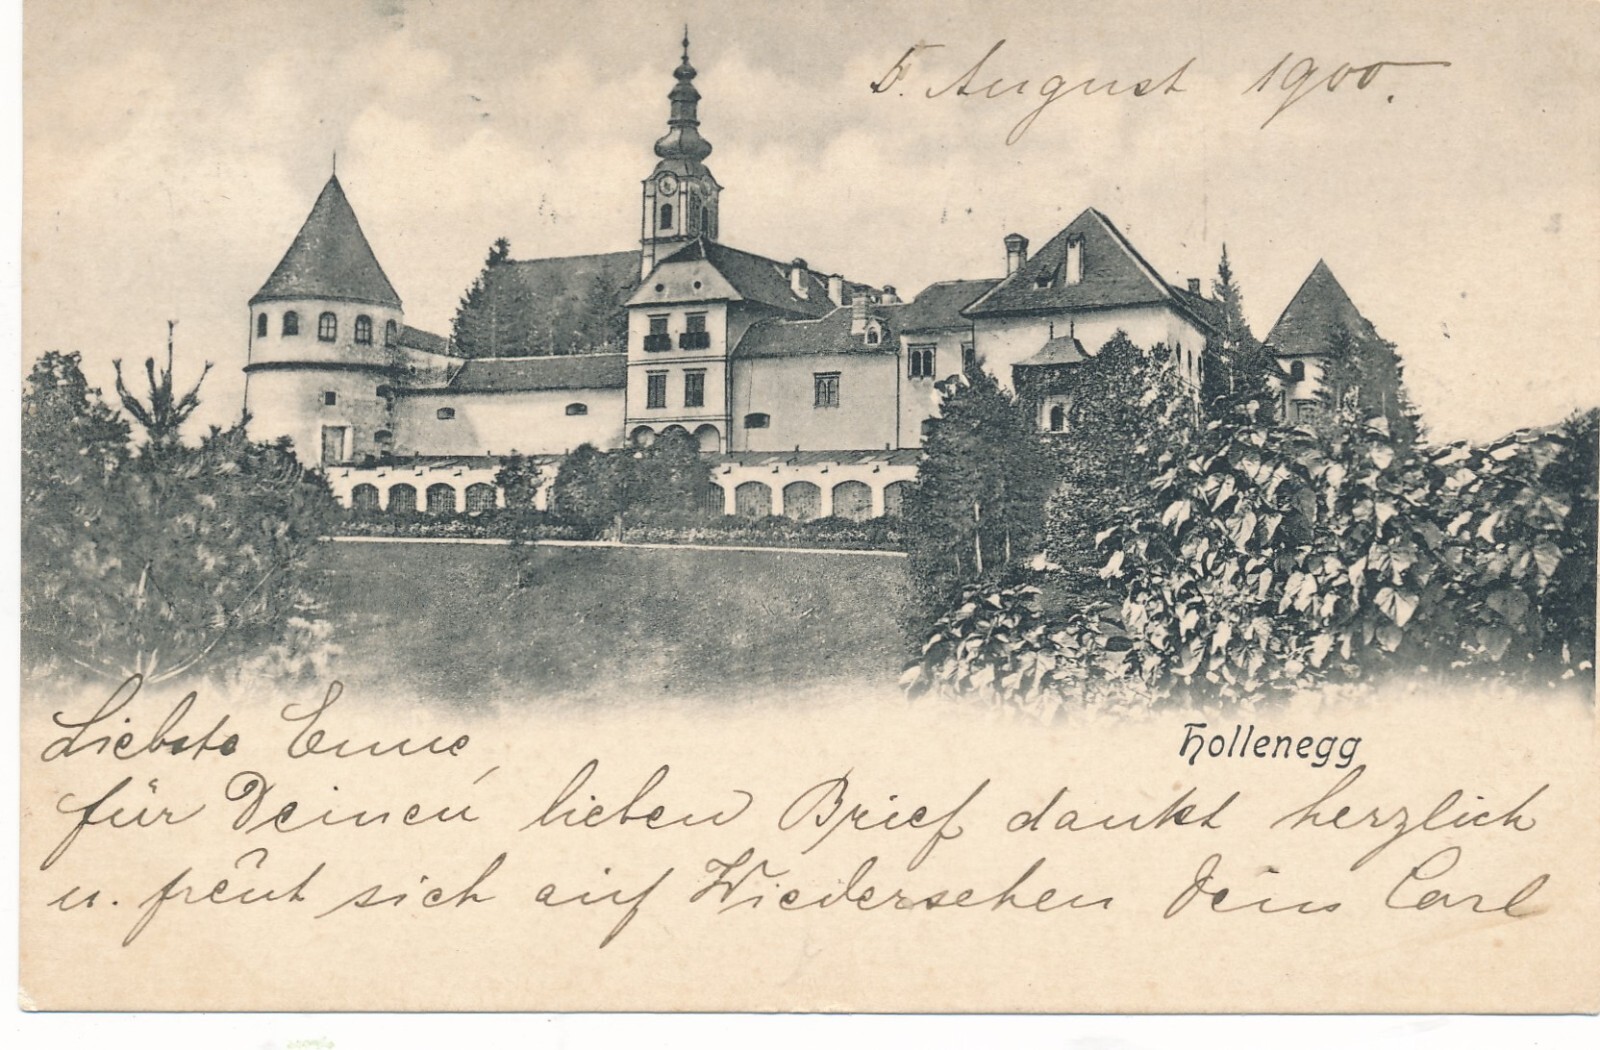 5. August 1900.
Hollenegg
Liebste Enne,
für Deinen lieben Brief dankt herzlich
u. freut sich auf Wiedersehen Dein Carl